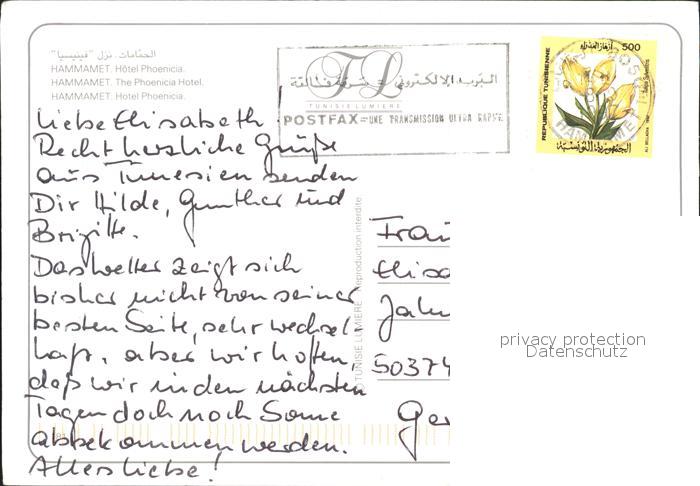 الحمّامات. نزل "فينيسيا"
HAMMAMET. Hôtel Phoenicia.
HAMMAMET. The Phoenicia Hotel.
HAMMAMET. Hotel Phoenicia.
TL
TUNISIE LUMIERE
البريد الإلكتروني = سرعة فائقة
POSTFAX = UNE TRANSMISSION ULTRA RAPIDE
500
REPUBLIQUE TUNISIENNE
الجمهورية التونسية
HAMMAMET
Liebe Elisabeth
Recht herzliche Grüße
aus Tunesien senden
Dir Hilde, Gunther und
Brigitte.
Das Wetter zeigt sich
bisher nicht von seiner
besten Seite, sehr wechsel-
haft, aber wir hoffen,
daß wir in den nächsten
Tagen doch noch Sonne
abbekommen werden.
Alles Liebe!
© TUNISIE LUMIERE Reproduction interdite
Frau
Elisa
Jahn
50374
Ger
privacy protection
Datenschutz